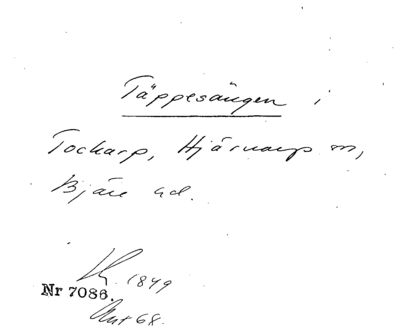 Täppesängen i
Tockarp, Hjärnarp sn,
Bjäre hd.
1849
Nr 7086.
68.